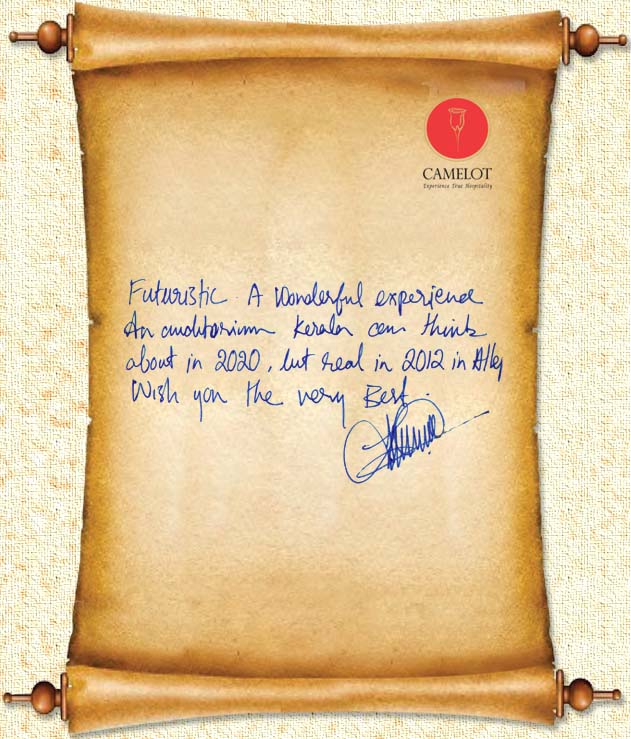 CAMELOT
Experience True Hospitality
Futuristic. A Wonderful experience
An auditorium Kerala can think
about in 2020, but real in 2012 in Alley
Wish you the very Best.